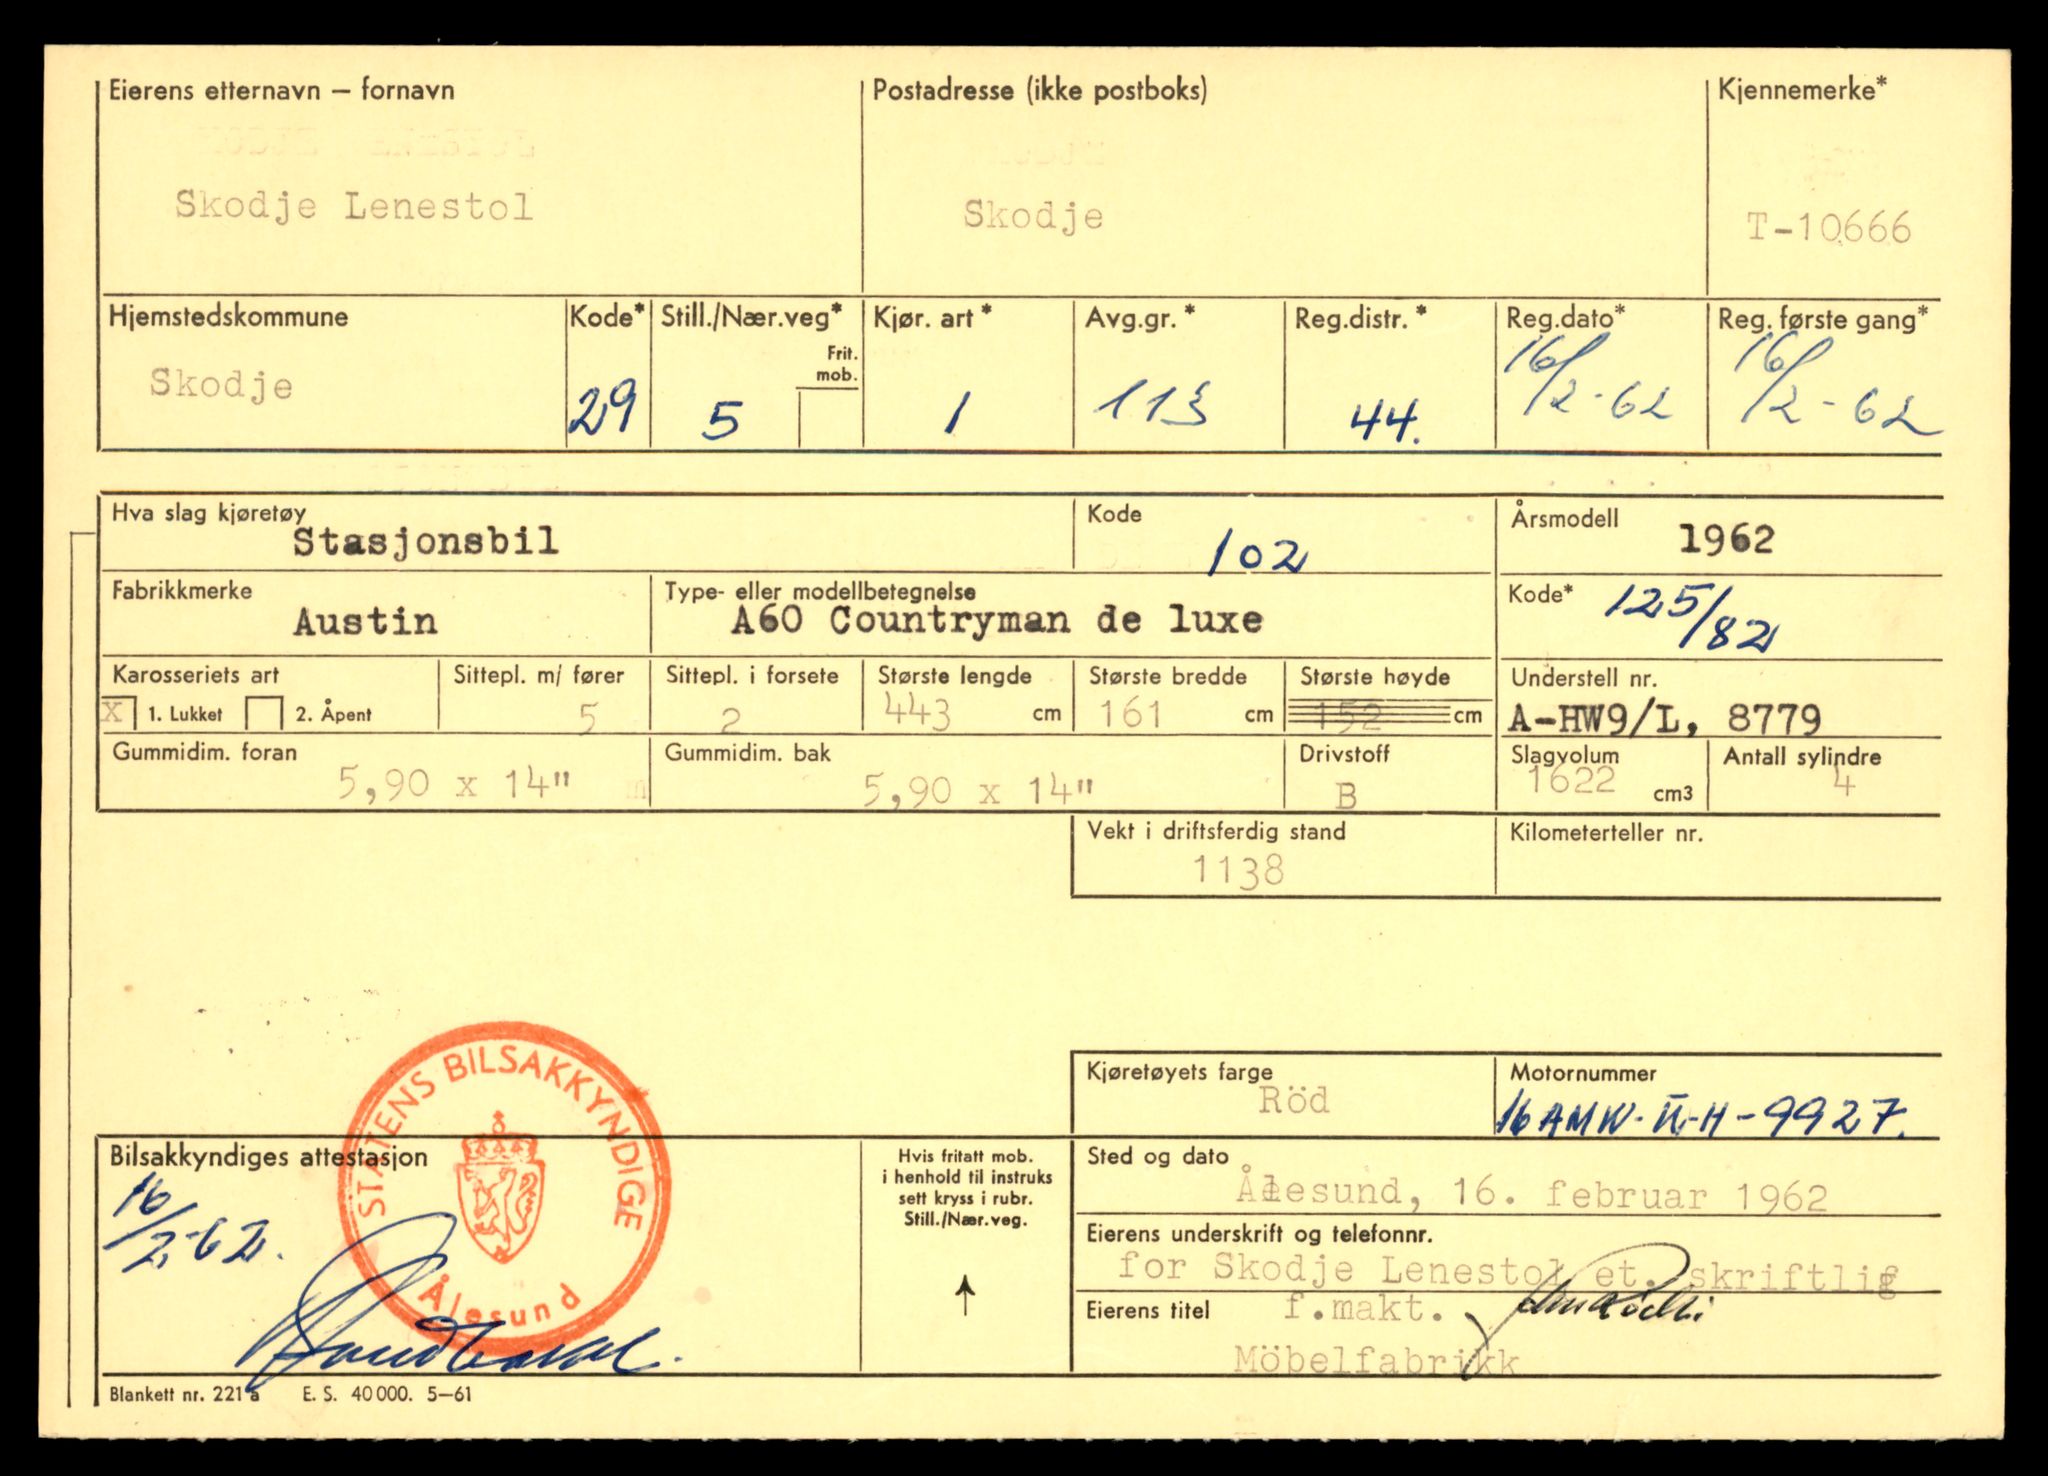 Eierens etternavn – fornavn
Postadresse (ikke postboks)
Kjennemerke*
Skodje Lenestol
Skodje
T-10666
Hjemstedskommune
Kode*
Still./Nær.veg*
Kjør. art *
Avg.gr. *
Reg.distr. *
Reg.dato*
Reg. første gang*
Frit.
mob.
Skodje
29
5
1
113
44.
16/2-62
16/2-62
Hva slag kjøretøy
Stasjonsbil
Kode
102
Årsmodell
1962
Fabrikkmerke
Austin
Type- eller modellbetegnelse
A60 Countryman de luxe
Kode*
125/82
Karosseriets art
Sittepl. m/ fører
Sittepl. i forsete
Største lengde
Største bredde
Største høyde
Understell nr.
X 1. Lukket
2. Åpent
5
2
443 cm
161 cm
152 cm
A-HW9/L, 8779
Gummidim. foran
Gummidim. bak
Drivstoff
Slagvolum
Antall sylindre
5,90 x 14" m
5,90 x 14"
B
1622 cm3
4
Vekt i driftsferdig stand
1138
Kilometerteller nr.
Kjøretøyets farge
Röd
Motornummer
16AMW-U-H-9927.
STATENS BILSAKKYNDIGE
Ålesund
Bilsakkyndiges attestasjon
16/2-62.
Hvis fritatt mob.
i henhold til instruks
sett kryss i rubr.
Still./Nær.veg.
Sted og dato
Ålesund, 16. februar 1962
Eierens underskrift og telefonnr.
for Skodje Lenestol et. skriftlig
Eierens titel
f.makt.
Möbelfabrikk
Blankett nr. 221 a E. S. 40000. 5–61